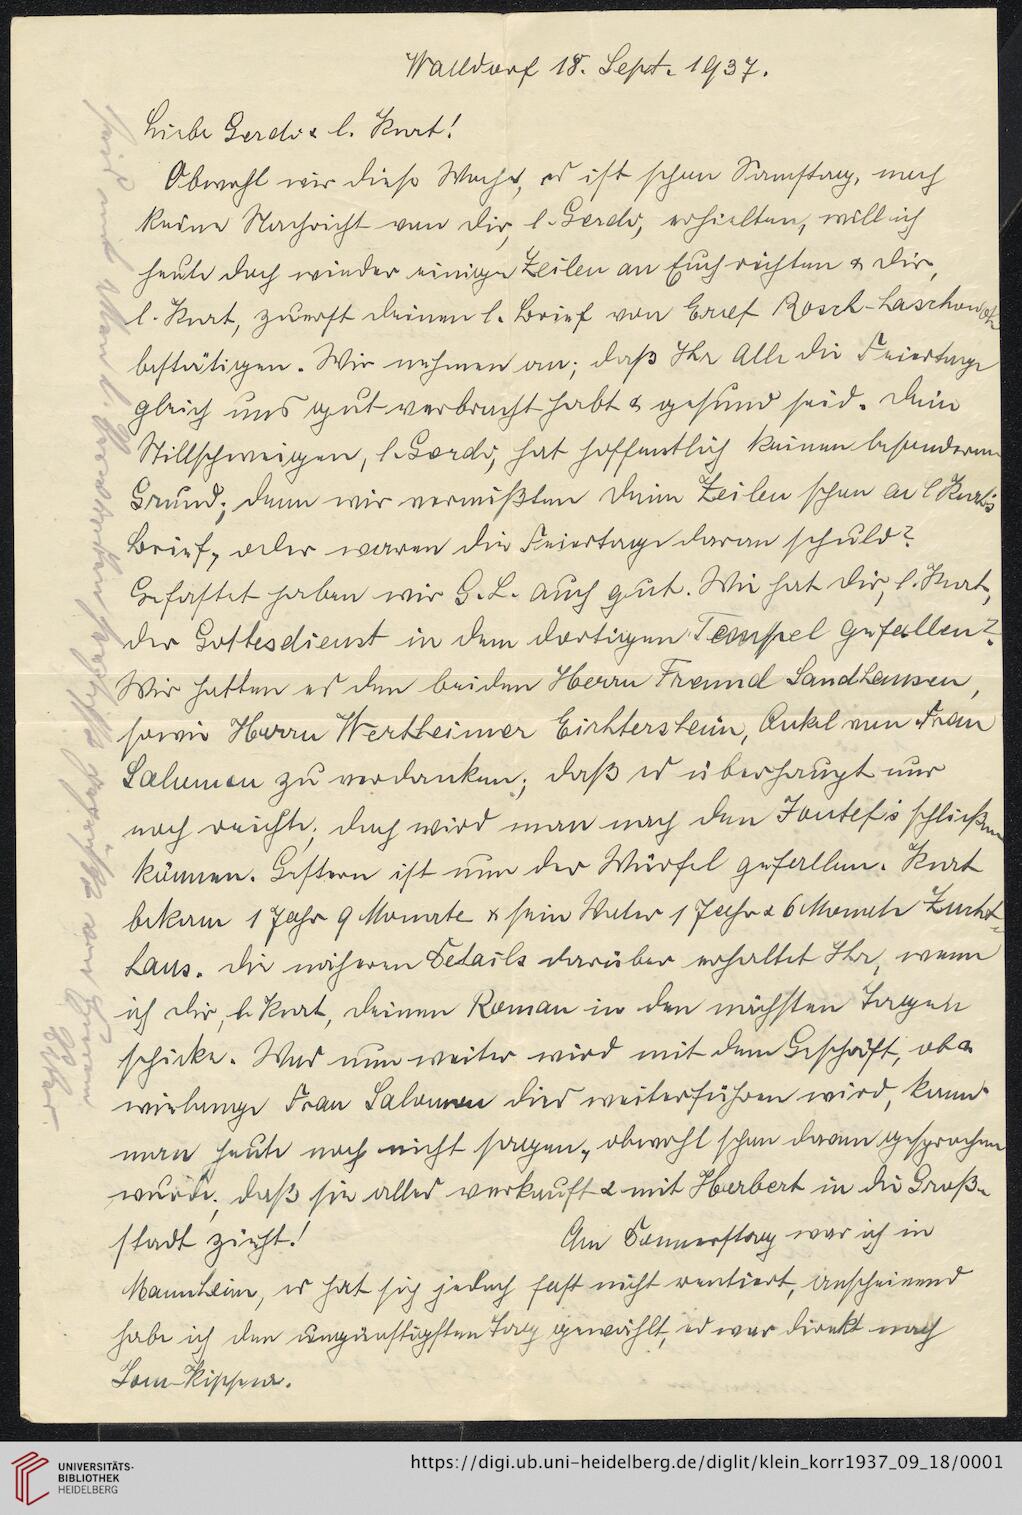 Walldorf 18. Sept. 1937.
Liebe Gerdi & l. Kurt!
Obwohl wir diese Woche, es ist schon Samstag, noch
keine Nachricht von dir, l. Gerdi, erhielten, will ich
heute doch wieder einige Zeilen an Euch richten & dir,
l. Kurt, zuerst deinen l. Brief von Rosch-Haschonoh
bestätigen. Wir nehmen an; daß Ihr Alle die Feiertage
gleich uns gut verbracht habt & gesund seid. Dein
Stillschweigen, l. Gerdi, hat hoffentlich keinen besonderen
Grund; denn wir vermißten deine Zeilen schon an l. Kurt's
Brief, oder waren die Feiertage daran schuld?
Gefastet haben wir G. L. auch gut. Wie hat dir, l. Kurt,
der Gottesdienst in dem dortigen Tempel gefallen?
Wir hatten es den beiden Herrn Freund Sandhausen,
sowie Herrn Wertheimer Eichtersheim, Onkel von Frau
Salomon zu verdanken; daß es überhaupt nur
noch reichte; doch wird man nach den Jontef's schließen
können. Gestern ist nun der Würfel gefallen. Kurt
bekam 1 Jahr 9 Monate & sein Vater 1 Jahr & 6 Monate Zucht-
haus. Die näheren Details darüber erhaltet Ihr, wenn
ich dir, l. Kurt, deinen Roman in den nächsten Tagen
schicke. Was nun weiter wird mit dem Geschäft, ob &
wielange Frau Salomon dies weiterführen wird, kann
man heute noch nicht sagen, obwohl schon davon gesprochen
wurde; daß sie alles verkauft & mit Herbert in die Groß-
stadt zieht!
Am Donnerstag war ich in
Mannheim, es hat sich jedoch fast nicht rentiert, anscheinend
habe ich den ungünstigsten Tag gewählt, es war direkt nach
Jom-Kippur.
UNIVERSITÄTS-
BIBLIOTHEK
HEIDELBERG
https://digi.ub.uni-heidelberg.de/diglit/klein_korr1937_09_18/0001